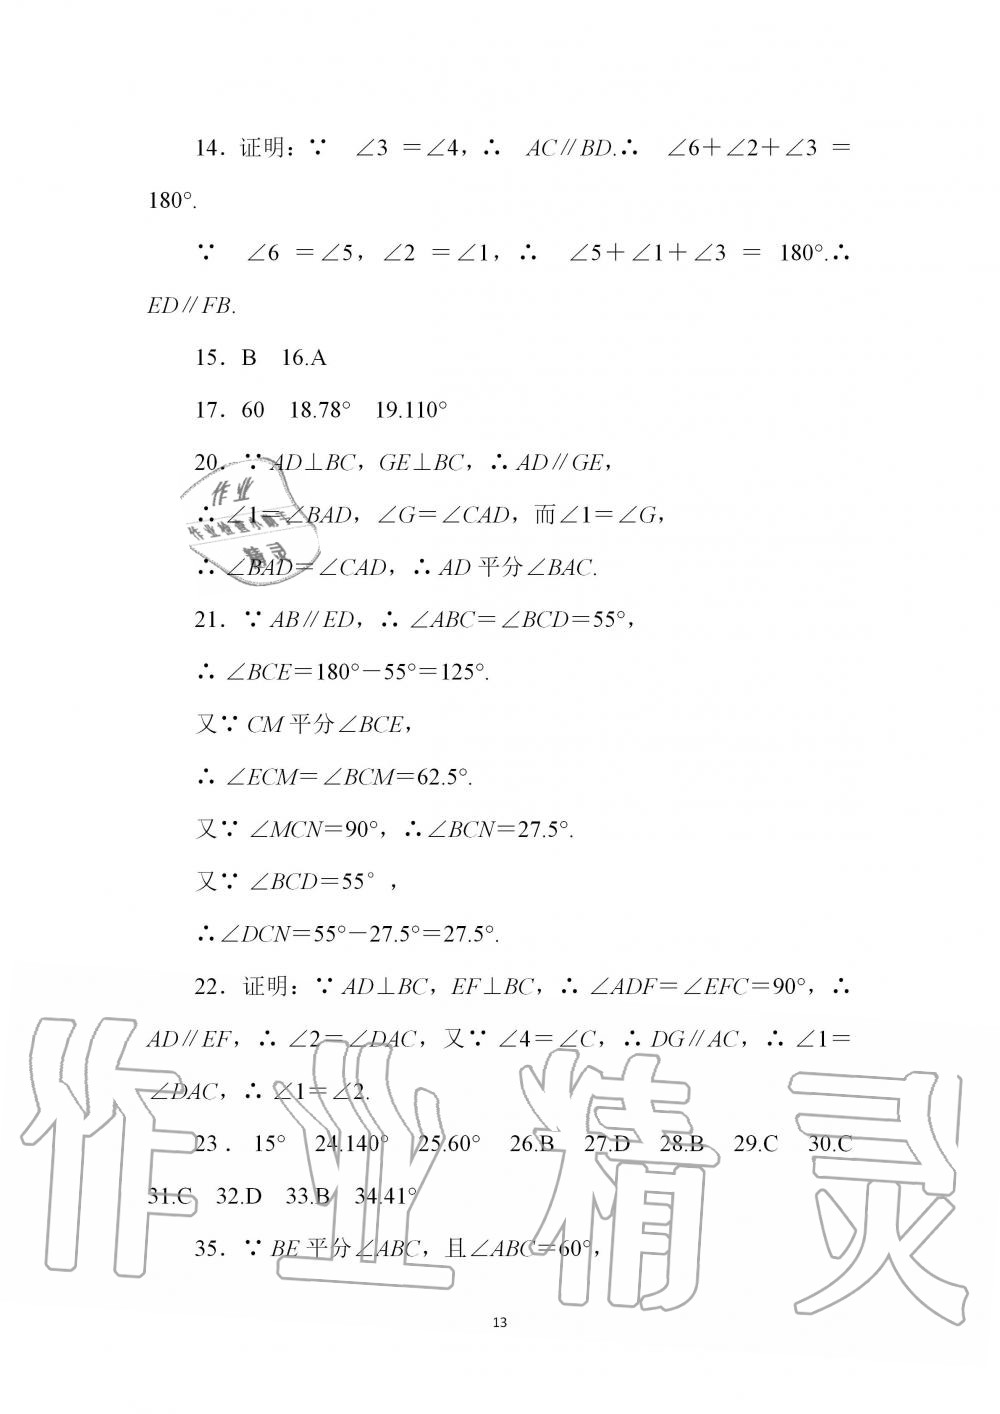 14．证明：∵ ∠3 ＝∠4，∴ AC∥BD.∴ ∠6＋∠2＋∠3 ＝
180°.
∵ ∠6 ＝∠5，∠2 ＝∠1，∴ ∠5＋∠1＋∠3 ＝ 180°.∴
ED∥FB.
15．B 16.A
17．60 18.78° 19.110°
20．∵ AD⊥BC，GE⊥BC，∴ AD∥GE，
∴ ∠1＝∠BAD，∠G＝∠CAD，而∠1＝∠G，
∴ ∠BAD＝∠CAD，∴ AD 平分∠BAC.
作业
作业检查小助手
精灵
21．∵ AB∥ED，∴ ∠ABC＝∠BCD＝55°，
∴ ∠BCE＝180°－55°＝125°.
又∵ CM 平分∠BCE，
∴ ∠ECM＝∠BCM＝62.5°.
又∵ ∠MCN＝90°，∴∠BCN＝27.5°.
又∵ ∠BCD＝55°，
∴∠DCN＝55°－27.5°＝27.5°.
22．证明：∵ AD⊥BC，EF⊥BC，∴ ∠ADF＝∠EFC＝90°，∴
AD∥EF，∴ ∠2＝∠DAC，又∵ ∠4＝∠C，∴ DG∥AC，∴ ∠1＝
∠DAC，∴ ∠1＝∠2.
23． 15° 24.140° 25.60° 26.B 27.D 28.B 29.C 30.C
31.C 32.D 33.B 34.41°
35．∵ BE 平分∠ABC，且∠ABC＝60°，
作业精灵
13